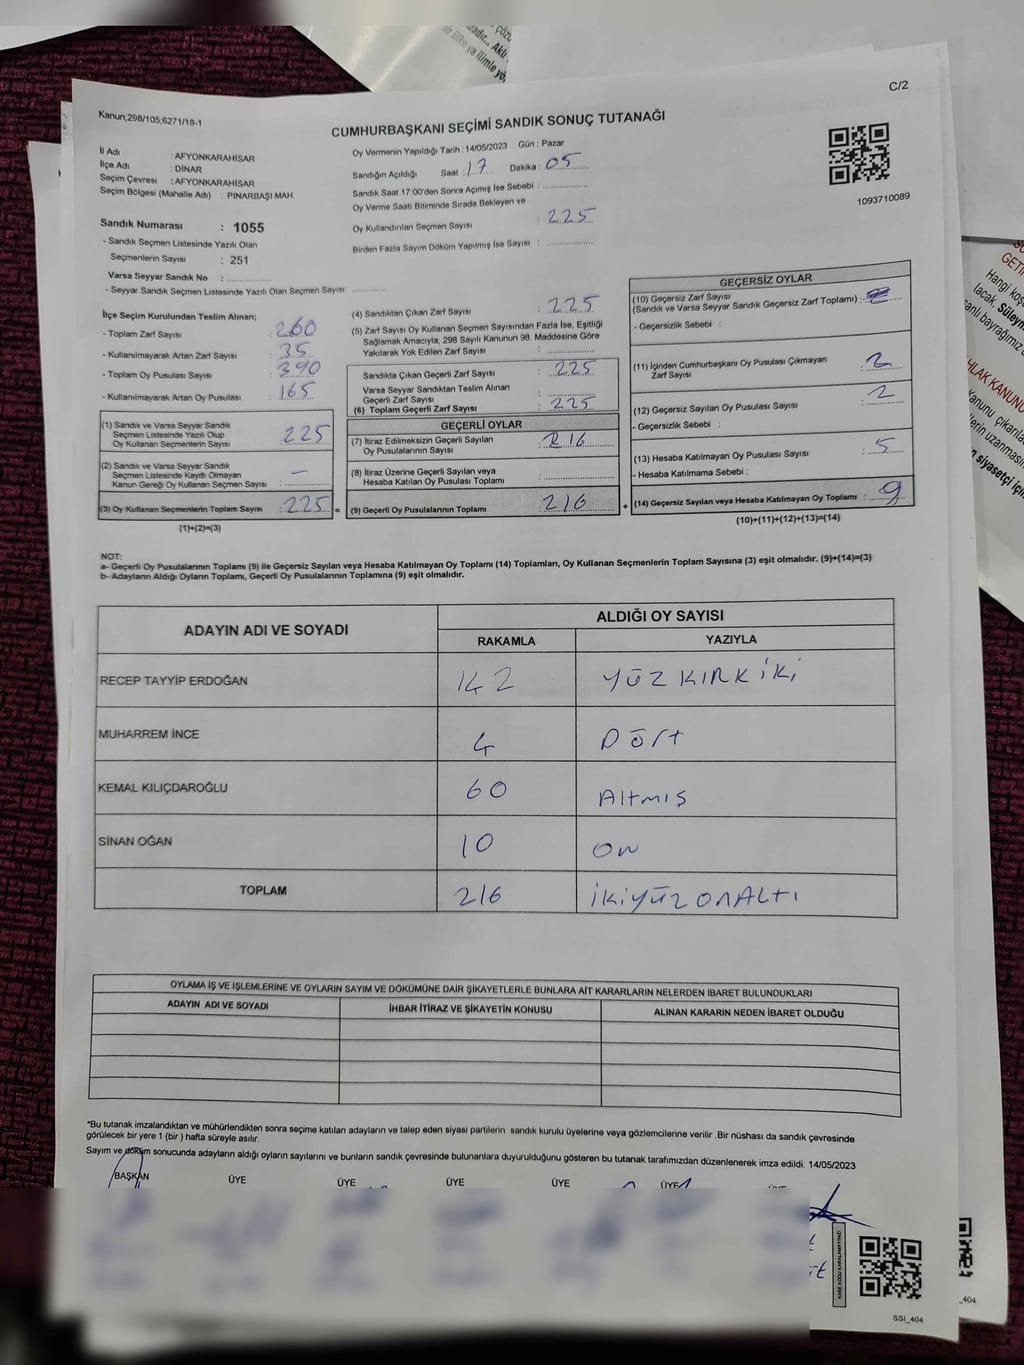 C/2
Kanun;298/105;6271/18-1
CUMHURBAŞKANI SEÇİMİ SANDIK SONUÇ TUTANAĞI
İl Adı : AFYONKARAHİSAR
İlçe Adı : DİNAR
Seçim Çevresi : AFYONKARAHİSAR
Seçim Bölgesi (Mahalle Adı) : PINARBAŞI MAH.
Oy Vermenin Yapıldığı Tarih :14/05/2023 Gün : Pazar
Sandığın Açıldığı Saat : 17 Dakika : 05
Sandık Saat 17:00'den Sonra Açımış İse Sebebi :
Oy Verme Saati Bitiminde Sırada Bekleyen ve
Oy Kullandırılan Seçmen Sayısı : 225
Birden Fazla Sayım Döküm Yapılmış İse Sayısı :
1093710089
Sandık Numarası : 1055
- Sandık Seçmen Listesinde Yazılı Olan
Seçmenlerin Sayısı : 251
Varsa Seyyar Sandık No :
- Seyyar Sandık Seçmen Listesinde Yazılı Olan Seçmen Sayısı:
İlçe Seçim Kurulundan Teslim Alınan;
- Toplam Zarf Sayısı : 260
- Kullanılmayarak Artan Zarf Sayısı : 35
- Toplam Oy Pusulası Sayısı : 390
- Kullanılmayarak Artan Oy Pusulası : 165
(1) Sandık ve Varsa Seyyar Sandık
Seçmen Listesinde Yazılı Olup
Oy Kullanan Seçmenlerin Sayısı : 225
(2) Sandık ve Varsa Seyyar Sandık
Seçmen Listesinde Kayıtlı Olmayan
Kanun Gereği Oy Kullanan Seçmen Sayısı : —
(3) Oy Kullanan Seçmenlerin Toplam Sayısı : 225 =
(1)+(2)=(3)
(4) Sandıktan Çıkan Zarf Sayısı : 225
(5) Zarf Sayısı Oy Kullanan Seçmen Sayısından Fazla İse, Eşitliği
Sağlamak Amacıyla, 298 Sayılı Kanunun 98. Maddesine Göre
Yakılarak Yok Edilen Zarf Sayısı :
Sandıkta Çıkan Geçerli Zarf Sayısı : 225
Varsa Seyyar Sandıktan Teslim Alınan
Geçerli Zarf Sayısı :
(6) Toplam Geçerli Zarf Sayısı : 225
GEÇERLİ OYLAR
(7) İtiraz Edilmeksizin Geçerli Sayılan
Oy Pusulalarının Sayısı : 216
(8) İtiraz Üzerine Geçerli Sayılan veya
Hesaba Katılan Oy Pusulası Toplamı :
(9) Geçerli Oy Pusulalarının Toplamı : 216 +
GEÇERSİZ OYLAR
(10) Geçersiz Zarf Sayısı
(Sandık ve Varsa Seyyar Sandık Geçersiz Zarf Toplamı) :
- Geçersizlik Sebebi :
(11) İçinden Cumhurbaşkanı Oy Pusulası Çıkmayan
Zarf Sayısı : 2
(12) Geçersiz Sayılan Oy Pusulası Sayısı : 2
- Geçersizlik Sebebi :
(13) Hesaba Katılmayan Oy Pusulası Sayısı : 5
- Hesaba Katılmama Sebebi :
(14) Geçersiz Sayılan veya Hesaba Katılmayan Oy Toplamı : 9
(10)+(11)+(12)+(13)=(14)
NOT:
a- Geçerli Oy Pusulalarının Toplamı (9) ile Geçersiz Sayılan veya Hesaba Katılmayan Oy Toplamı (14) Toplamları, Oy Kullanan Seçmenlerin Toplam Sayısına (3) eşit olmalıdır. (9)+(14)=(3)
b- Adayların Aldığı Oyların Toplamı, Geçerli Oy Pusulalarının Toplamına (9) eşit olmalıdır.
ADAYIN ADI VE SOYADI
ALDIĞI OY SAYISI
RAKAMLA YAZIYLA
RECEP TAYYİP ERDOĞAN 142 YÜZ KIRK İKİ
MUHARREM İNCE 4 Dört
KEMAL KILIÇDAROĞLU 60 Altmış
SİNAN OĞAN 10 on
TOPLAM 216 İKİYÜZ ONALTI
OYLAMA İŞ VE İŞLEMLERİNE VE OYLARIN SAYIM VE DÖKÜMÜNE DAİR ŞİKAYETLERLE BUNLARA AİT KARARLARIN NELERDEN İBARET BULUNDUKLARI
ADAYIN ADI VE SOYADI İHBAR İTİRAZ VE ŞİKAYETİN KONUSU ALINAN KARARIN NEDEN İBARET OLDUĞU
*Bu tutanak imzalandıktan ve mühürlendikten sonra seçime katılan adayların ve talep eden siyasi partilerin sandık kurulu üyelerine veya gözlemcilerine verilir .Bir nüshası da sandık çevresinde
görülecek bir yere 1 (bir ) hafta süreyle asılır.
Sayım ve döküm sonucunda adayların aldığı oyların sayısını ve bunların sandık çevresinde bulunanlara duyurulduğunu gösteren bu tutanak tarafımızdan düzenlenerek imza edildi. 14/05/2023
BAŞKAN ÜYE ÜYE ÜYE ÜYE ÜYE
KARE KODU KARALAMAYINIZ!
SSI_404
_404